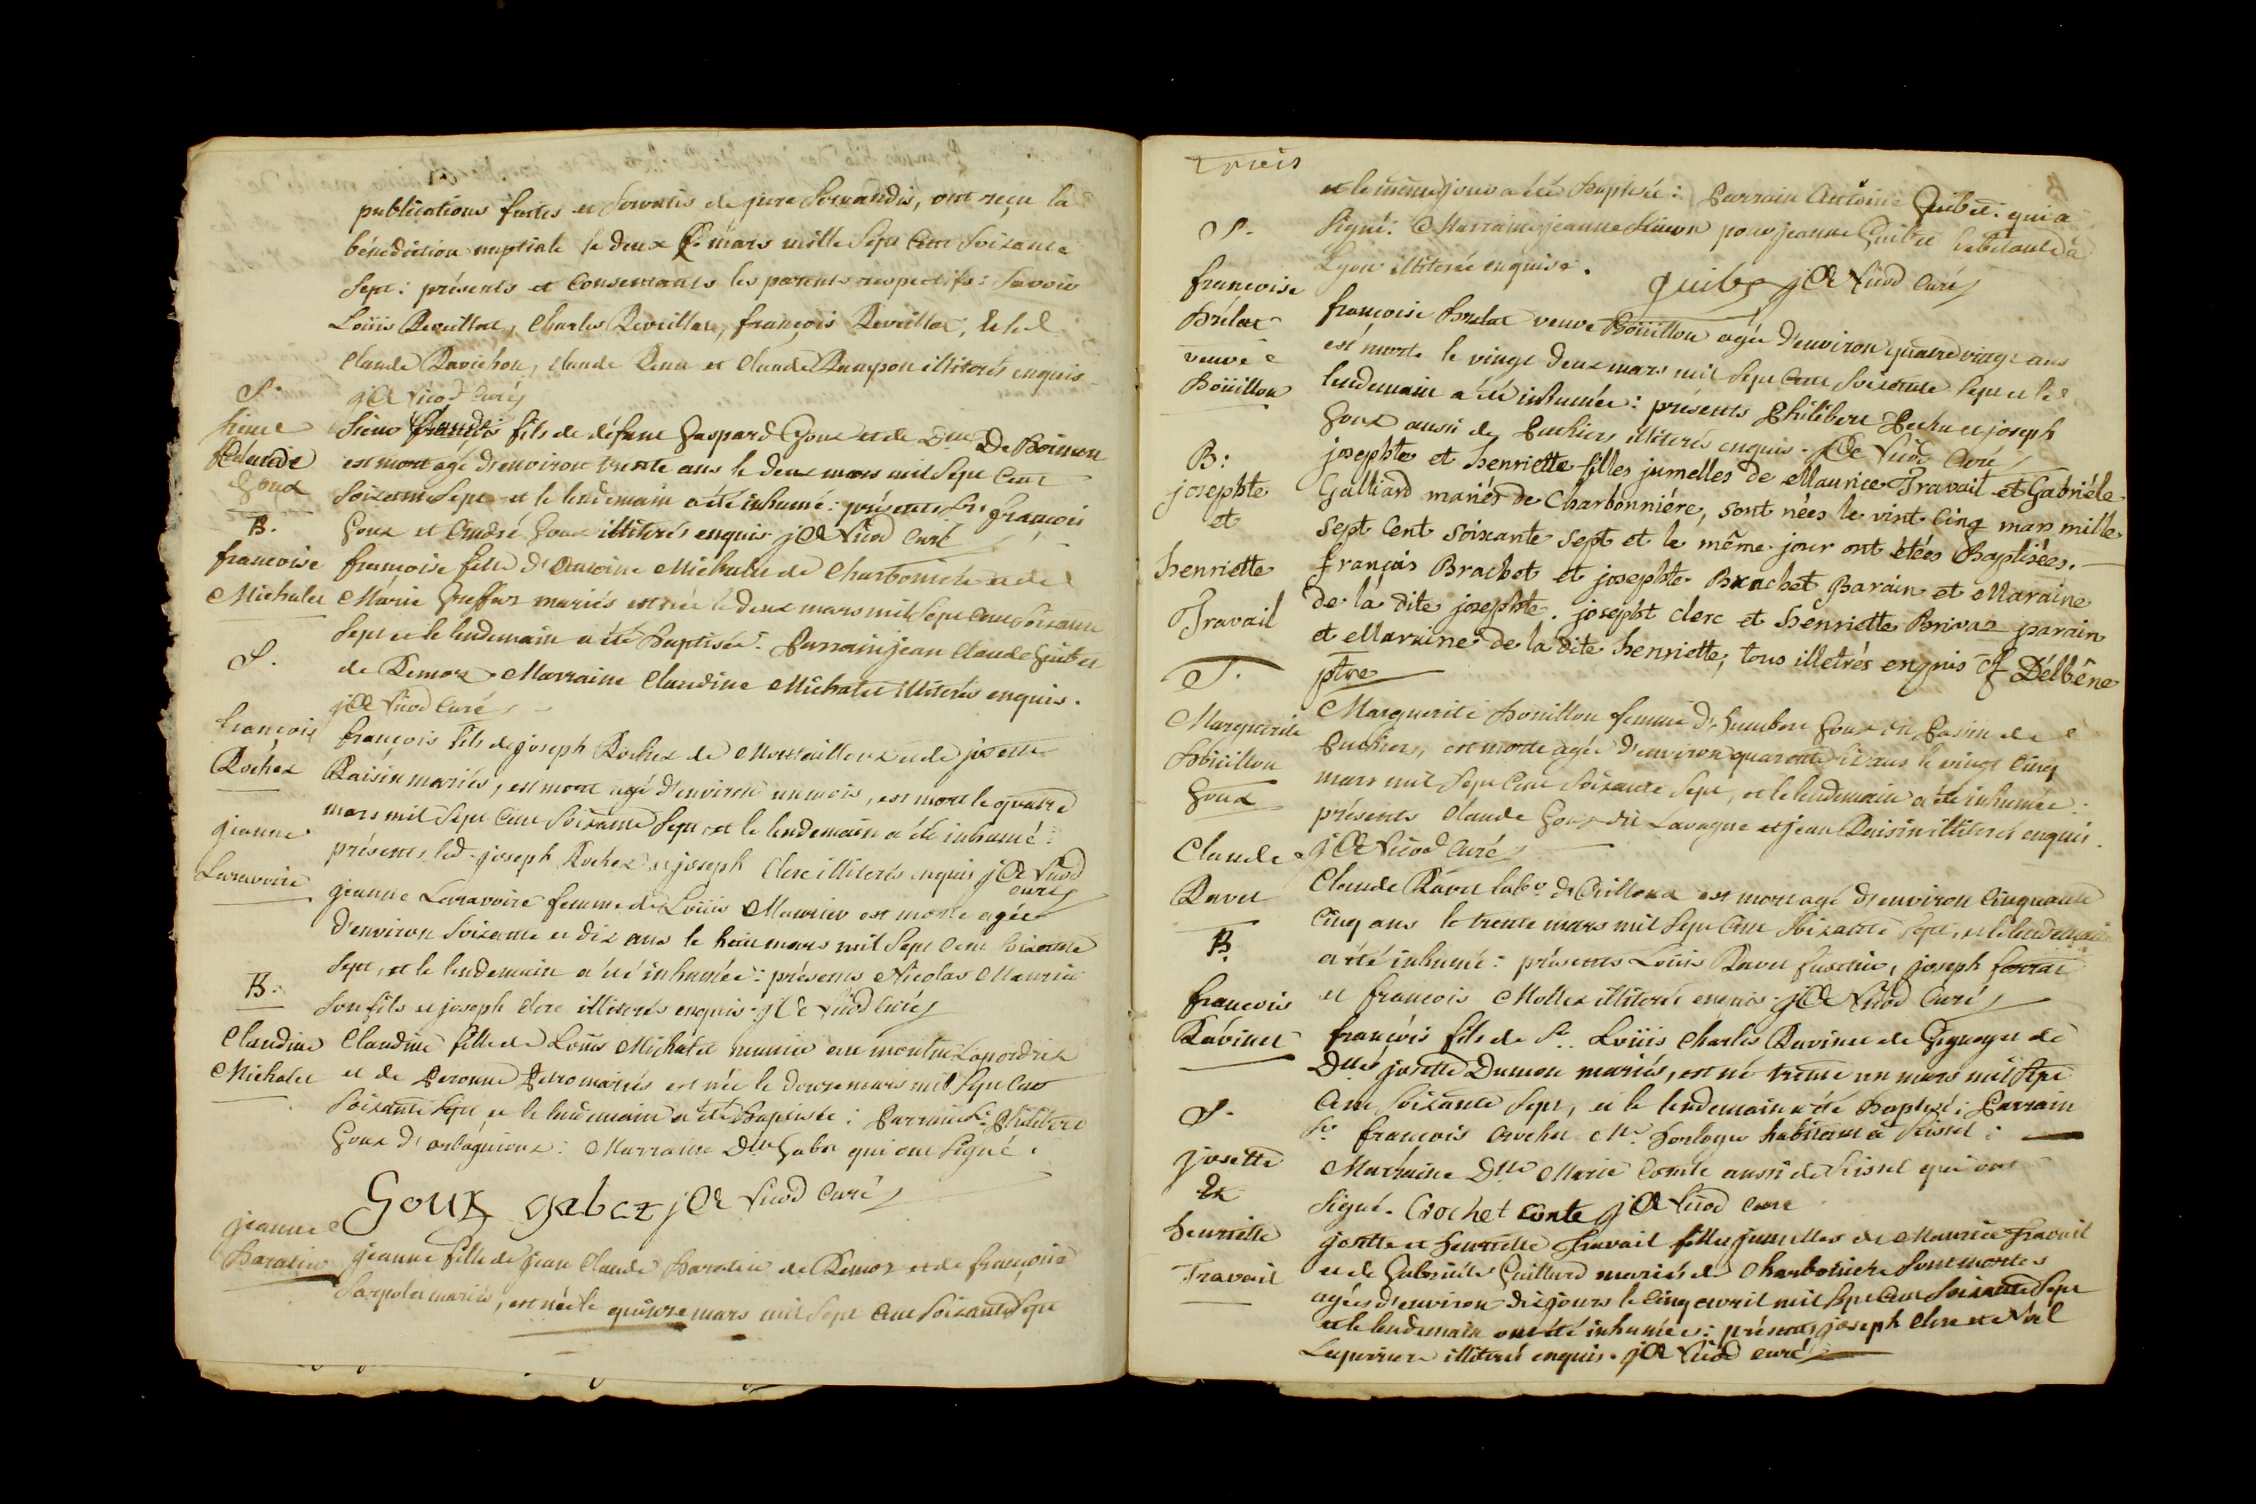 publications faites et servatis de jure servandis, ont reçu la
bénédiction nuptiale le deux mars mille sept cent soixante
sept: présents et consentants les parents respectifs: savoir
Loüis Reveillac, Charles Reveillac, françois Reveillac,
Claude Ravichon, Claude et Claude Rampon illiterés enquis
jC Nicod curé
S.
Sieur
Claude
Goux
Sieur Claude fils de défunt Gaspard Goux et de Dlle De Boirion
est mort agé d'environ trente ans le deux mars mil sept cent
soixante sept et le lendemain a été inhumé: présents Sr françois
Goux et André Goux illiterés enquis jC Nicod curé
B.
françoise
Michalet
françoise fille d'Antoine Michalet de Charboniére et de
Marie mariés est née le deux mars mil sept cent soixante
sept et le lendemain a été baptisée. Parrain jean Claude Guibet
de Remoz Marraine Claudine Michalet illiterés enquis.
jC Nicod curé
S.
françois
Rochex
françois fils de joseph Rochex de et de josette
Raisin mariés, est mort agé d'environ un mois, est mort le quatre
mars mil sept cent soixante sept et le lendemain a été inhumé:
présents led. joseph Rochex et joseph Clerc illiterés enquis jC Nicod
curé
jeanne
Laravoire
jeanne Laravoire femme de Loüis Maurier est morte agée
d'environ soixante et dix ans le huit mars mil sept cent soixante
sept, et le lendemain a été inhumée: présents Nicolas Maurier
son fils et joseph Clerc illiterés enquis. jC Nicod curé
B.
Claudine
Michalet
Claudine fille de Loüis Michalet munier au moulin
et de Peronne mariés est née le douze mars mil sept cent
soixante sept et le lendemain a été baptisée: Parrain Sr. Philibert
Goux d'artaguieux: Marraine Dlle Gabet qui ont signé.
Goux gabet jC Nicod curé
jeanne
Baratin
jeanne fille de jean Claude Baratin de Remoz et de françoise
mariés, est née le quinze mars mil sept cent soixante sept
trois
et le même jour a été baptisée: Parrain Antoine Guibet qui a
signé. Marraine jeanne pour jeanne Guibet habitante à
Lyon illiterée enquise.
guibet jC Nicod curé
S.
françoise
Brélat
veuve
Boüillon
françoise Brelat veuve Boüillon agée d'environ quatre vingt ans
est morte le vingt deux mars mil sept cent soixante sept et le
lendemain a été inhumée: présents Philibert et joseph
Goux aussi de Puthiers illiterés enquis. jC Nicod curé
B:
josephte
et
henriette
Travail
josephte et henriette filles jumelles de Maurice Travail et Gabriéle
Galliard mariés de Charbonniére, sont nées le vint cinq mars mille
sept cent soixante sept et le même jour ont étées baptisées.
françois Brachet et josephte Brachet Parain et Maraine
de la dite josephte. josepht clerc et henriette Brivaz parain
et Maraine de la dite henriette, tous illetrés enquis Délbêne
ptre
S.
Marguerite
Boüillon
Goux
Marguerite Bouillon femme d'humbert Goux dit Passin de
Puthiers, est morte agée d'environ quarante ans le vingt cinq
mars mil sept cent soixante sept, et le lendemain a été inhumée:
présents Claude Goux dit Lavagne et jean Raisin illiterés enquis.
jC Nicod curé
Claude
Ravet
Claude Ravet labr de Crilloux est mort agé d'environ cinquante
cinq ans le trente mars mil sept cent soixante sept, et le lendemain
a été inhumé: présents Loüis Ravet, joseph
et françois Mollex illiterés enquis. jC Nicod curé
B.
françois
Ravinet
françois fils de Sr. Loüis Charles Ravinet de et de
Dlle josette Dumon mariés, est né trente un mars mil sept
cent soixante sept, et le lendemain a été baptisé: Parrain
Sr. françois Crochet Me. horloger habitant à Seissel:
Marraine Dlle Marie Comte aussi de Seissel qui ont
signé. Crochet Conte jC Nicod curé
S.
josette
et
henriette
Travail
josette et henriette Travail filles jumelles de Maurice Travail
et de Gabriéle Gaillard mariés de Charboniere sont mortes
agées d'environ dix jours le cinq avril mil sept cent soixante sept
et le lendemain ont été inhumées: présents joseph Clerc et Noël
illiterés enquis. jC Nicod curé